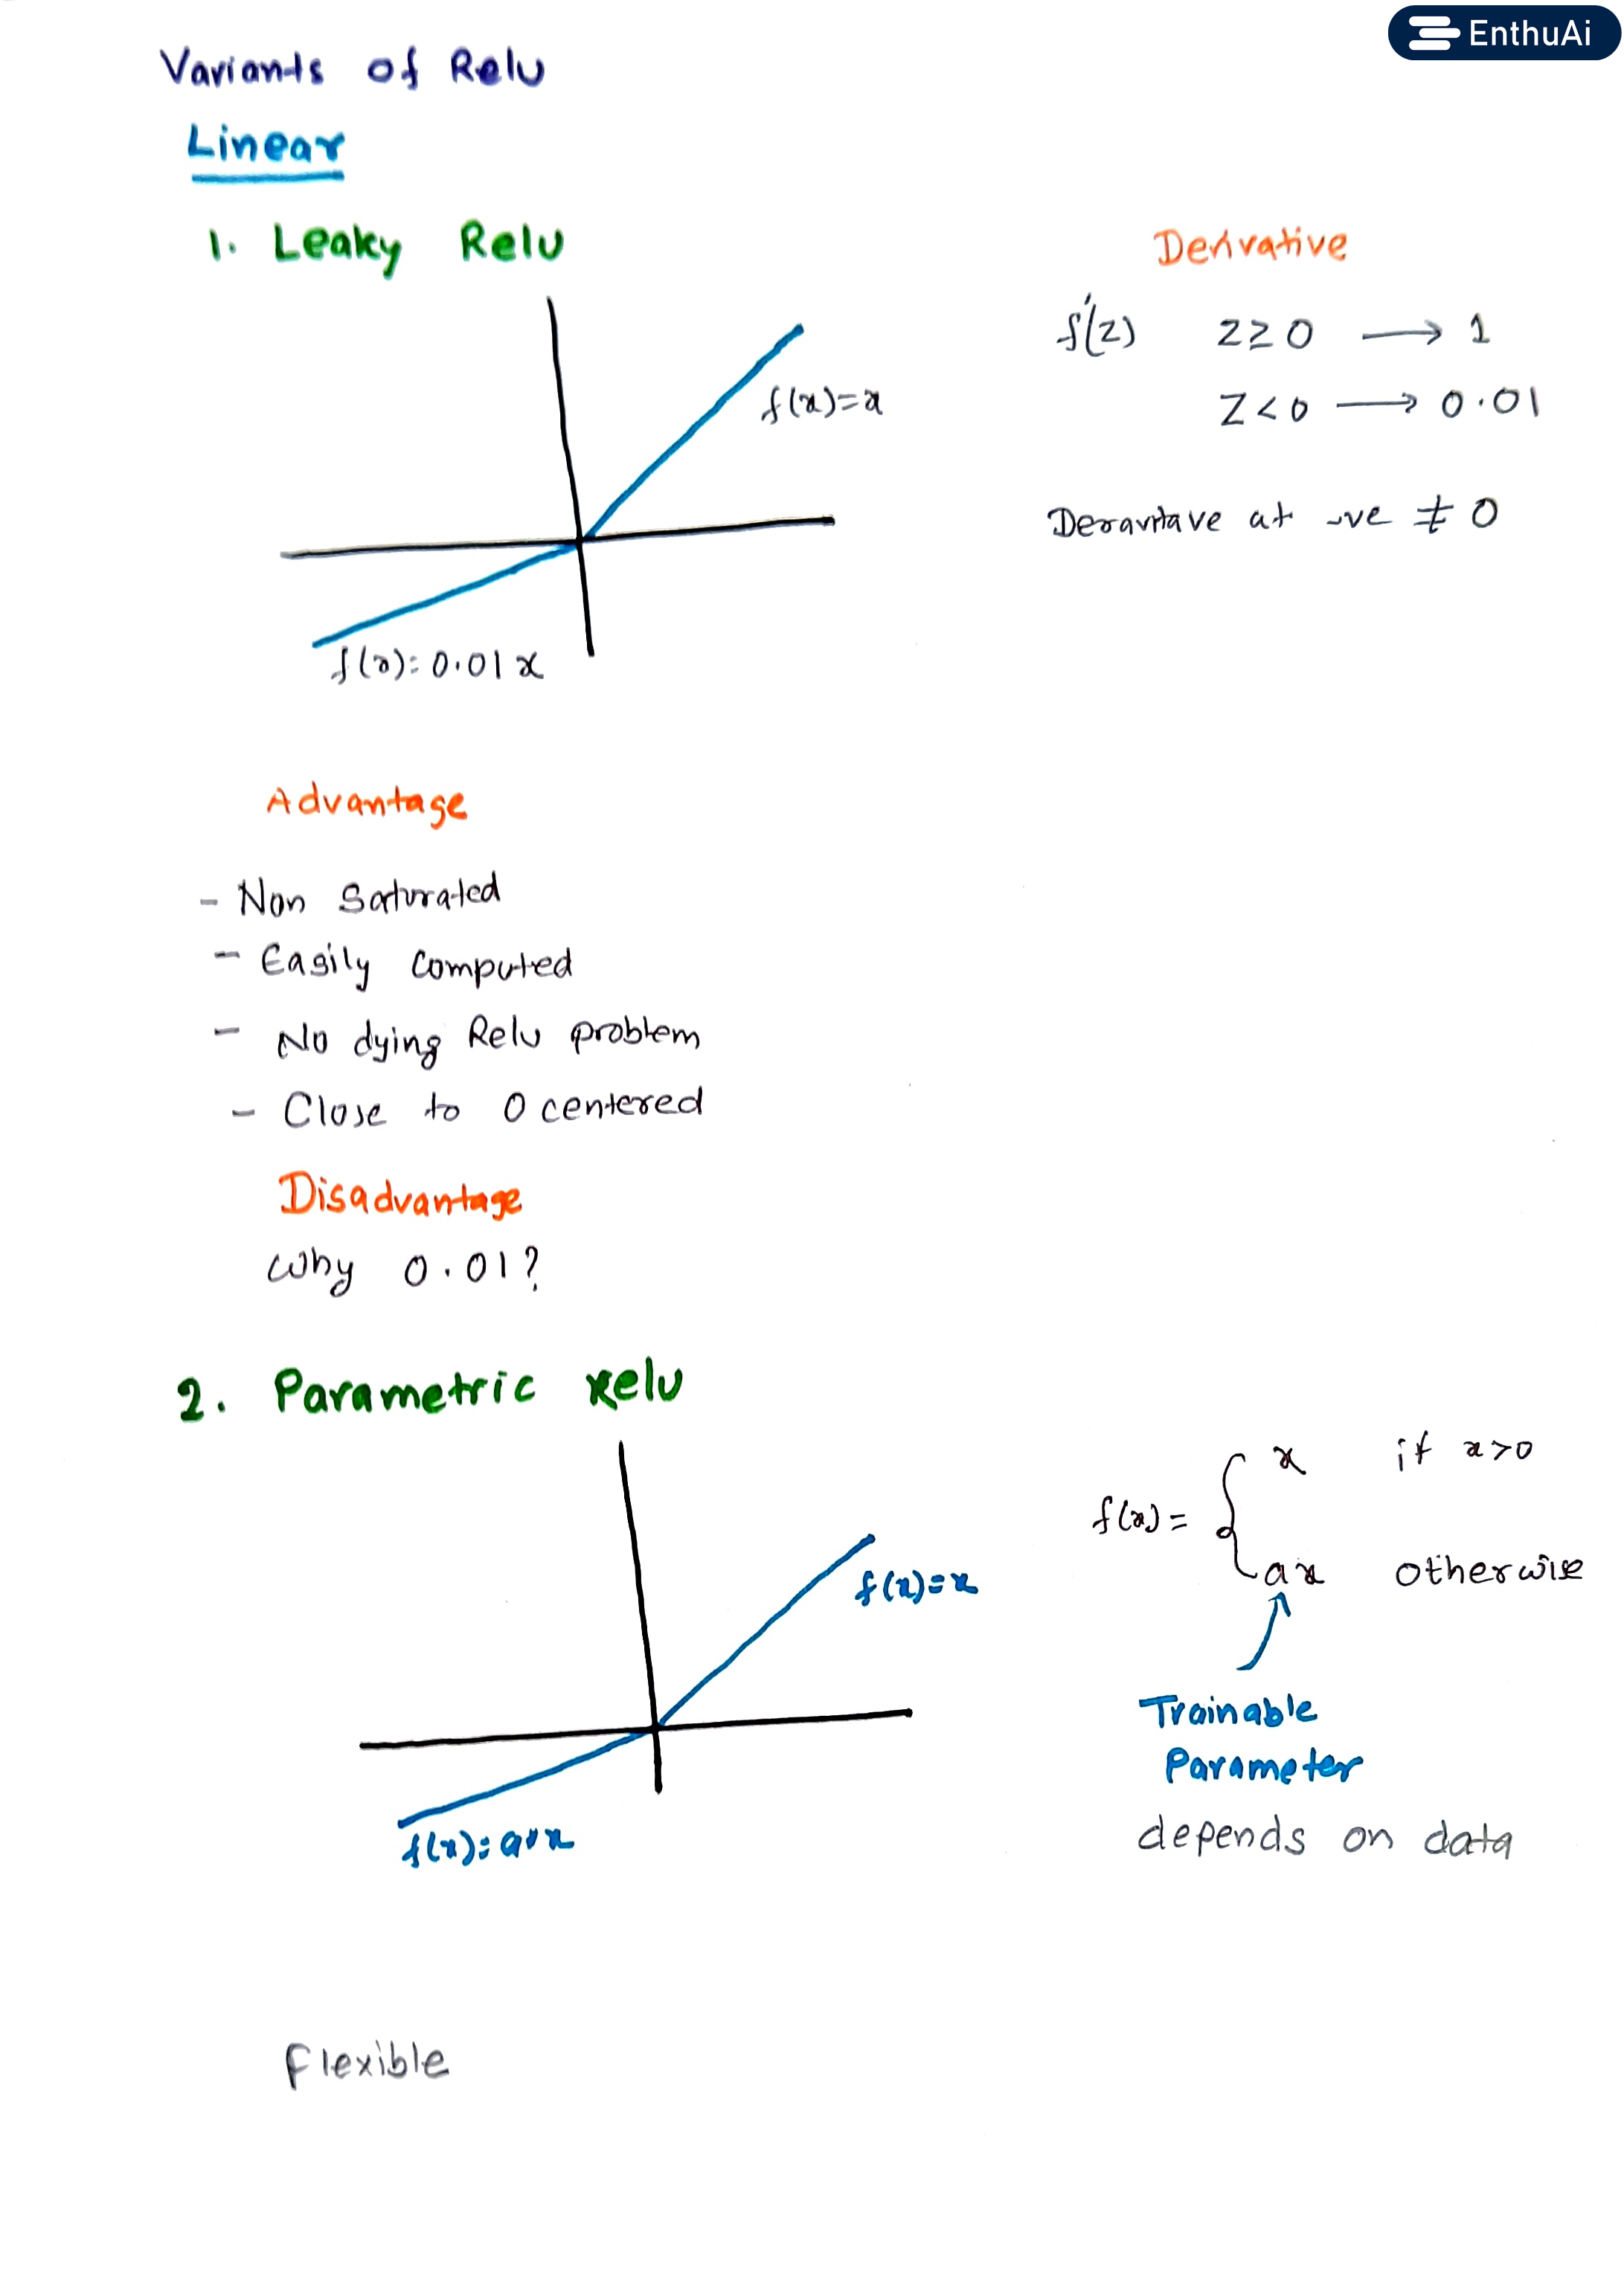 EnthuAi
Variants of Relu
Linear
1. Leaky Relu
Derivative
f'(z) z≥0 → 1
z<0 → 0.01
Deravitave at -ve ≠ 0
f(x)=x
f(x)=0.01x
Advantage
- Non Saturated
- Easily Computed
- No dying Relu problem
- Close to 0 centered
Disadvantage
Why 0.01?
2. Parametric relu
f(x)= { x if x>0
ax otherwise
f(x)=x
Trainable
Parameter
depends on data
f(x)=a*x
Flexible